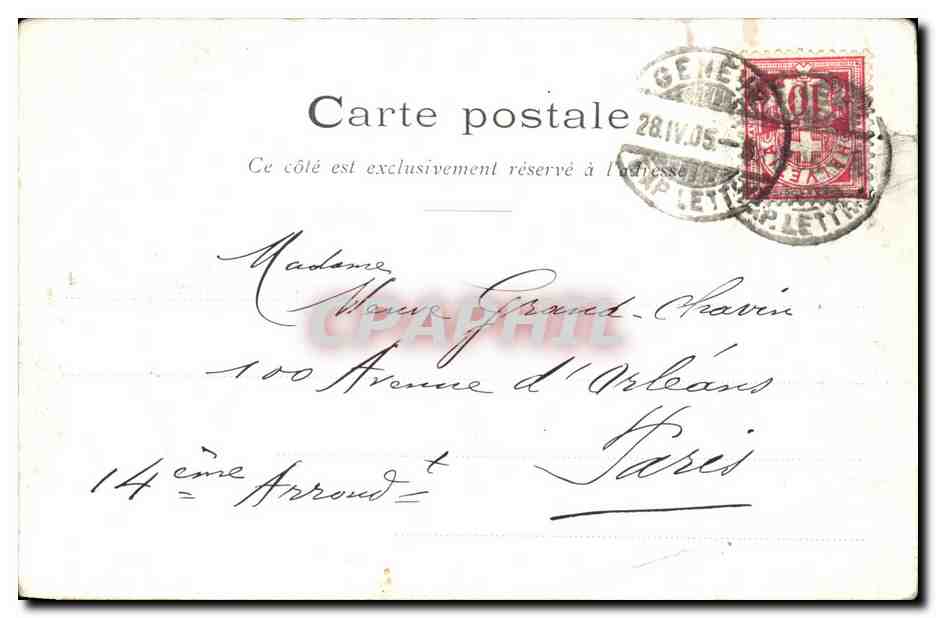 Carte postale
Ce côté est exclusivement réservé à l'adresse
GENÈVE
28.IV.05.
EXP. LETTR.
EXP. LETTR.
10
HELVETIA
CPAPHIL
Madame
Veuve Grand-Chavin
100 Avenue d'Orléans
Paris
14ème Arrondt